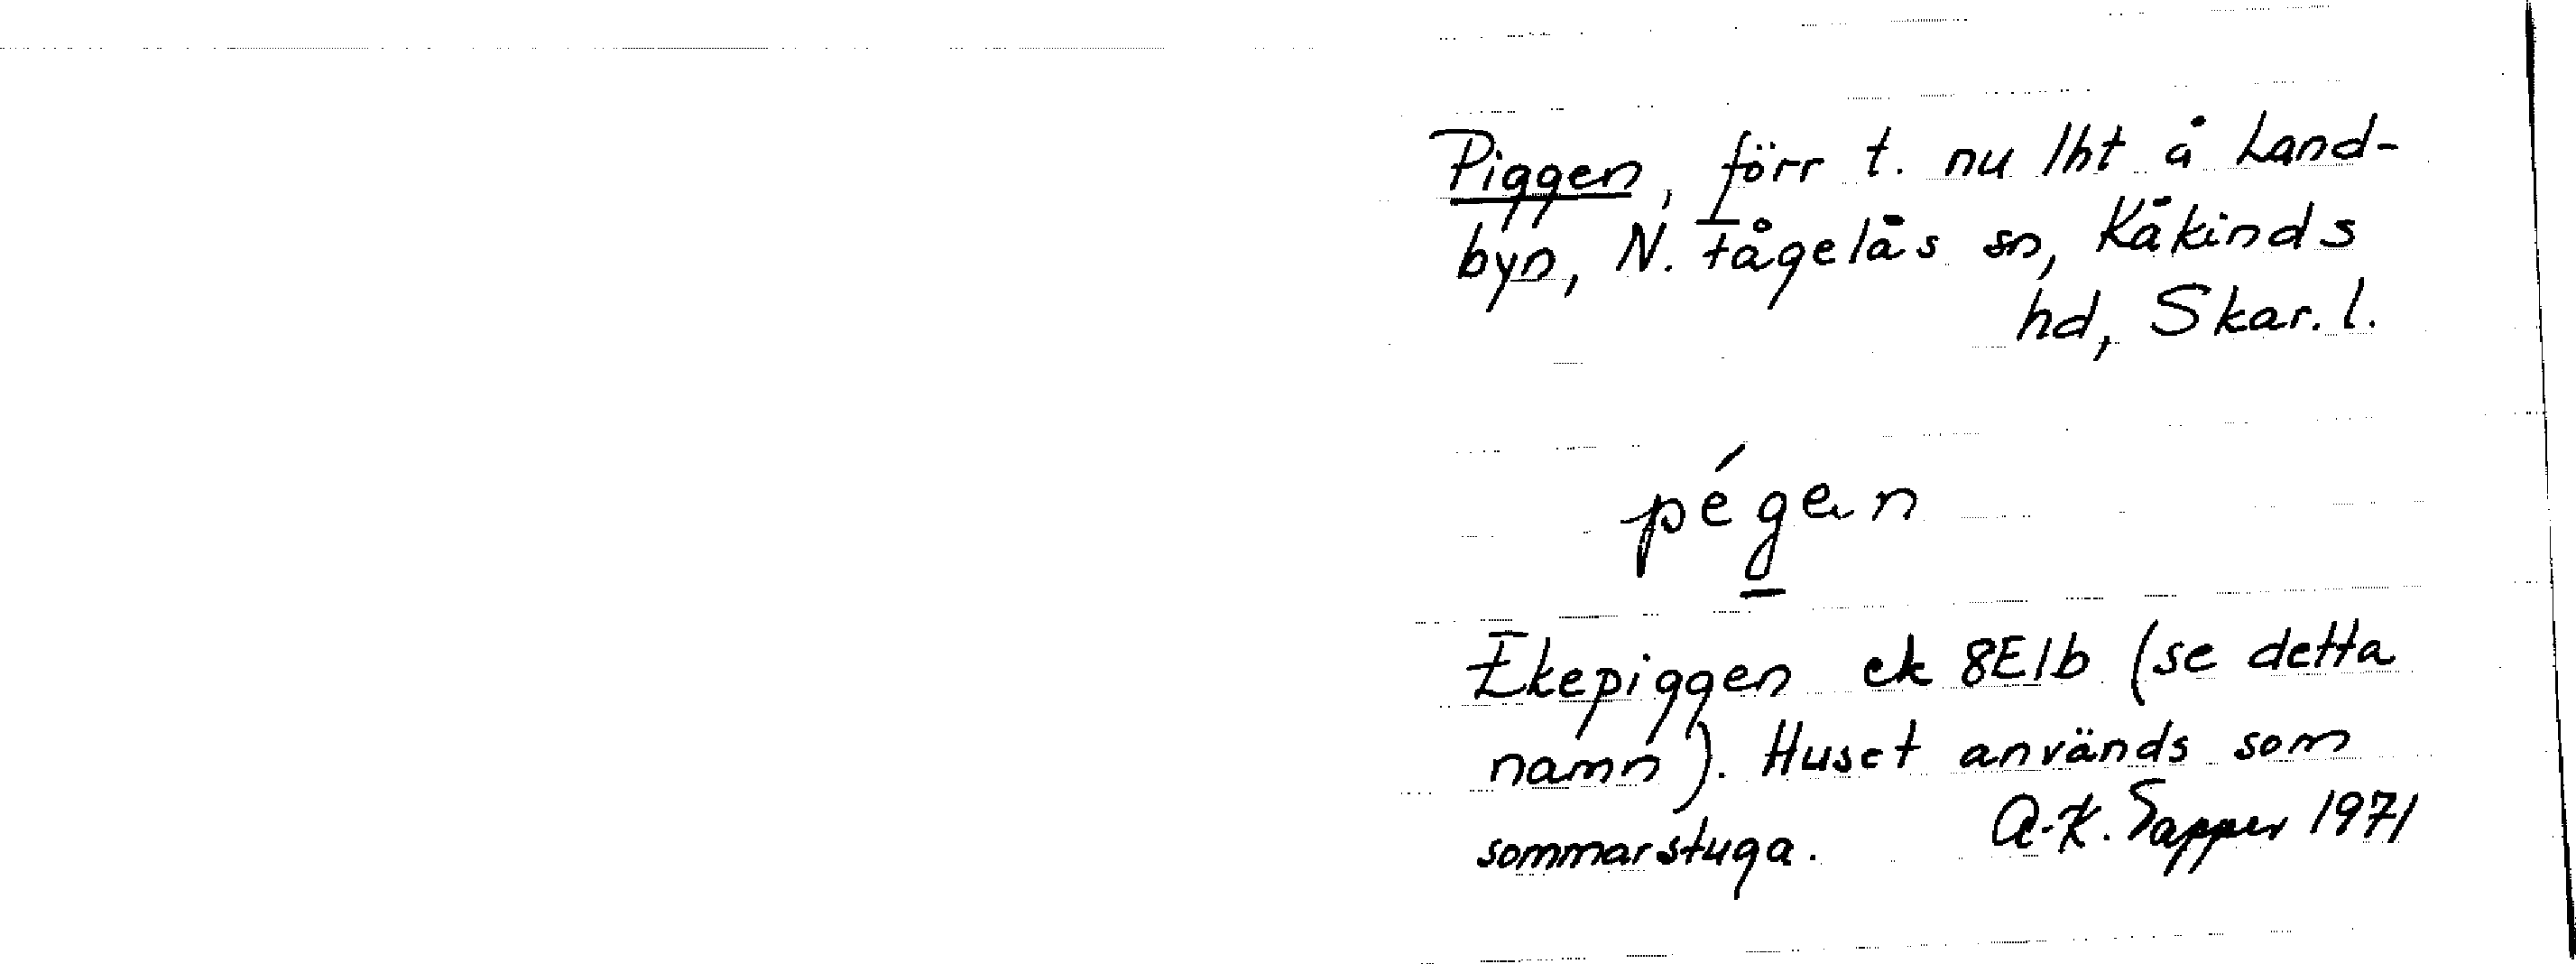 Piggen, förr t. nu lht å Land-
byn, N. Fågelås sn, Kåkinds
hd, Skar. l.
pégen
Ekepiggen ek 8E1b (se detta
namn). Huset används som
sommarstuga. A.-K. Sapper 1971